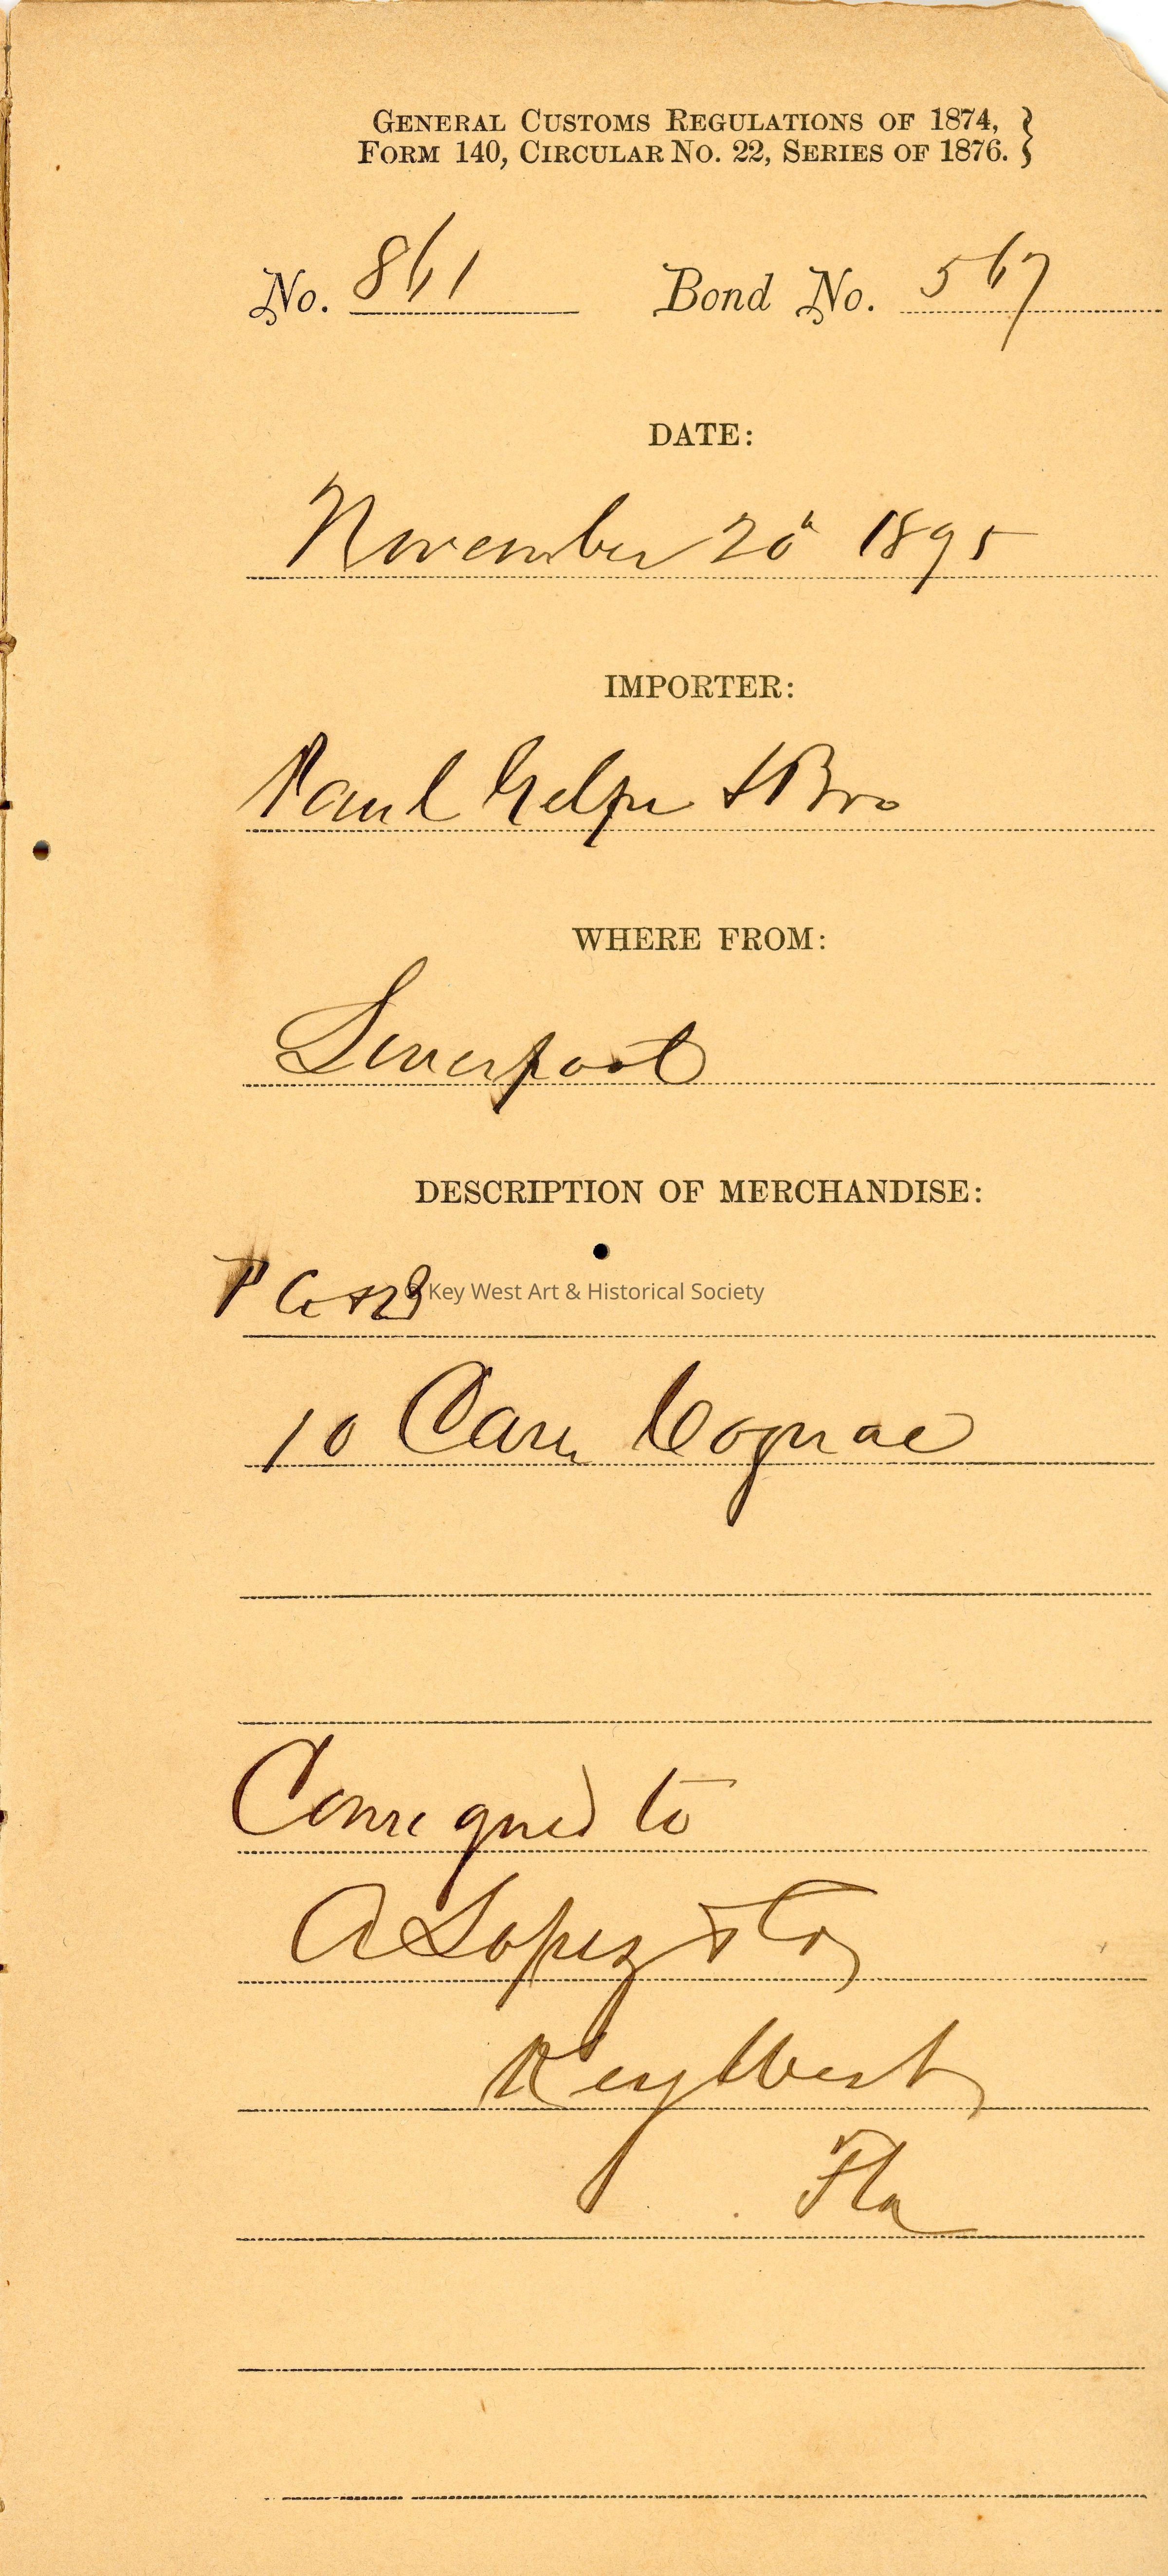 GENERAL CUSTOMS REGULATIONS OF 1874,
FORM 140, CIRCULAR NO. 22, SERIES OF 1876.
No. 861 Bond No. 567
DATE:
November 20" 1895
IMPORTER:
Paul Gelpi & Bro
WHERE FROM:
Liverpool
DESCRIPTION OF MERCHANDISE:
P G & B
© Key West Art & Historical Society
10 Cases Cognac
Consigned to
A Lopez & Co
Key West
Fla